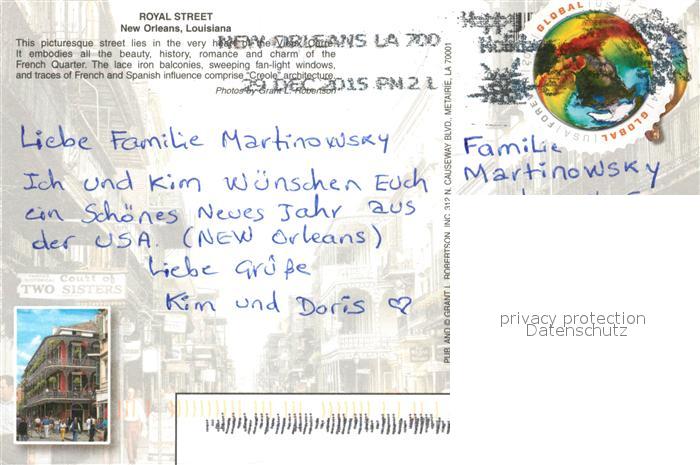 ROYAL STREET
New Orleans, Louisiana
This picturesque street lies in the very heart of the Vieux Carre.
It embodies all the beauty, history, romance and charm of the
French Quarter. The lace iron balconies, sweeping fan-light windows,
and traces of French and Spanish influence comprise "Creole" architecture.
Photos by Grant L. Robertson
NEW ORLEANS LA 700
29 DEC 2015 PM 2 L
GLOBAL
GLOBAL USA FOREVER
Liebe Familie Martinowsky
Ich und Kim Wünschen Euch
ein Schönes Neues Jahr aus
der USA. (NEW Orleans)
Liebe Grüße
Kim und Doris ♡
Familie
Martinowsky
PUB. AND © GRANT L. ROBERTSON, INC. 312 N. CAUSEWAY BLVD., METAIRIE, LA 70001
Court of
TWO SISTERS
privacy protection
Datenschutz